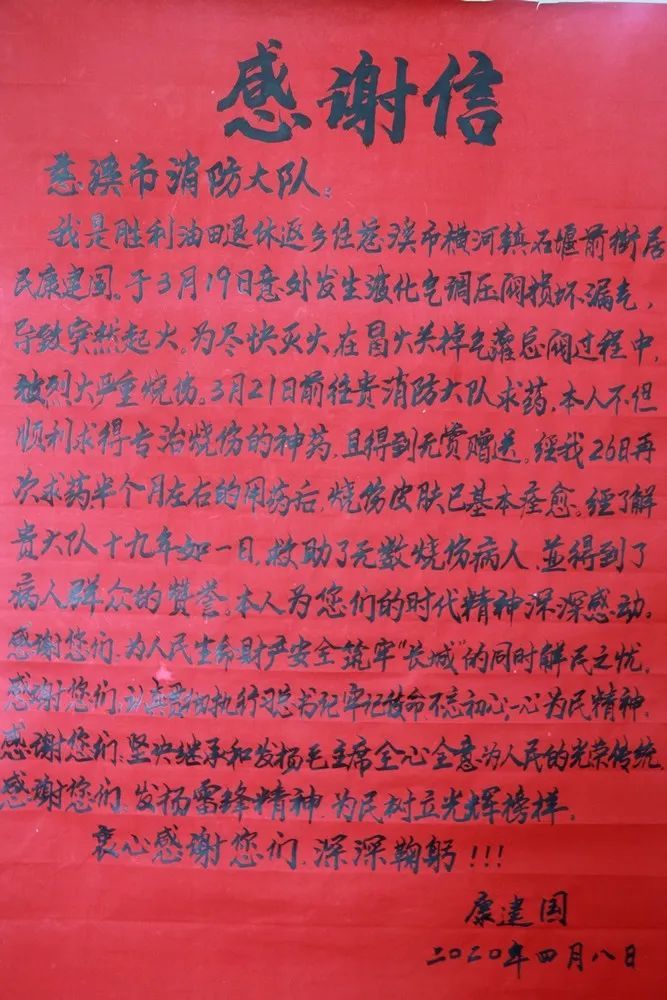 感谢信
慈溪市消防大队：
我是胜利油田退休返乡住慈溪市横河镇石堰前街居
民康建国。于3月19日意外发生液化气调压阀损坏漏气，
导致突然起火。为尽快灭火，在冒火关掉气灌总阀过程中，
被烈火严重烧伤。3月21日前往贵消防大队求药，本人不但
顺利求得专治烧伤的神药，且得到无赏赠送。经我26日再
次求药，半个月左右的用药后，烧伤皮肤已基本痊愈。经了解
贵大队十九年如一日，救助了无数烧伤病人，並得到了
病人群众的赞誉。本人为您们的时代精神深深感动。
感谢您们，为人民生命财产安全筑牢“长城”的同时解民之忧。
感谢您们，认真贯彻执行习总书记牢记使命不忘初心，一心为民精神。
感谢您们，坚决继承和发扬毛主席全心全意为人民的光荣传统。
感谢您们，发扬雷锋精神，为民树立光辉榜样。
衷心感谢您们，深深鞠躬!!!
康建国
二〇二〇年四月八日